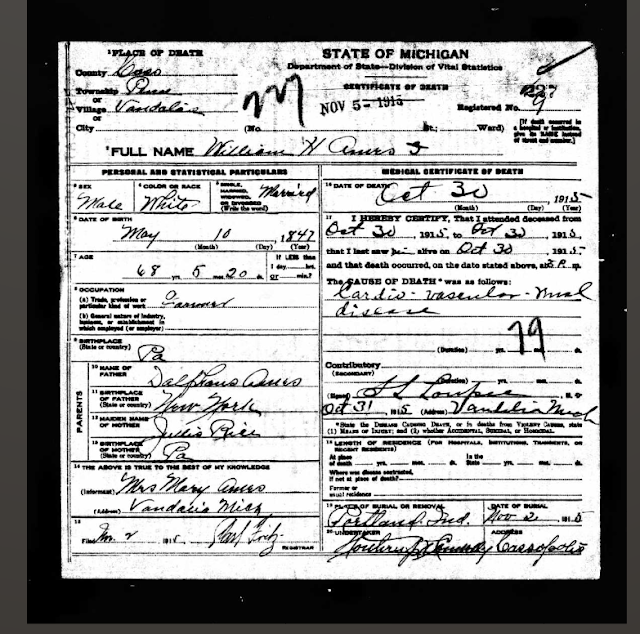 ¹PLACE OF DEATH
STATE OF MICHIGAN
Department of State—Division of Vital Statistics
CERTIFICATE OF DEATH
NOV 5- 1915
County Cass
Township
or
Village Vandalia
or
City (No. St.; Ward)
Registered No. 9
[If death occurred in a hospital or institution, give its NAME instead of street and number.]
²FULL NAME William H Ames
PERSONAL AND STATISTICAL PARTICULARS
³SEX Male
⁴COLOR OR RACE White
⁵SINGLE, MARRIED, WIDOWED, OR DIVORCED (Write the word) Married
⁶DATE OF BIRTH
May 10 1847
(Month) (Day) (Year)
⁷AGE
If LESS than 1 day,....hrs. or....min.?
68 yrs. 5 mos. 20 ds.
⁸OCCUPATION
(a) Trade, profession or particular kind of work Farmer
(b) General nature of industry, business, or establishment in which employed (or employer)
⁹BIRTHPLACE
(State or country)
Pa
PARENTS
¹⁰NAME OF FATHER Dalphaus Ames
¹¹BIRTHPLACE OF FATHER (State or country) New York
¹²MAIDEN NAME OF MOTHER Rice
¹³BIRTHPLACE OF MOTHER (State or country) Pa
¹⁴THE ABOVE IS TRUE TO THE BEST OF MY KNOWLEDGE
(Informant) Mrs Mary Ames
(Address) Vandalia Mich
¹⁵
Filed Nov 2 1915
REGISTRAR
MEDICAL CERTIFICATE OF DEATH
¹⁶DATE OF DEATH Oct 30 1915
(Month) (Day) (Year)
¹⁷ I HEREBY CERTIFY, That I attended deceased from
Oct 30, 1915, to Oct 30, 1915,
that I last saw him alive on Oct 30, 1915,
and that death occurred, on the date stated above, at m.
The CAUSE OF DEATH* was as follows:
Cardio-vascular-
disease
79
(Duration) yrs. mos. ds.
Contributory
(SECONDARY)
(Duration) yrs. mos. ds.
(Signed) M. D.
Oct 31, 1915 (Address) Vandalia Mich
*State the DISEASE CAUSING DEATH, or in deaths from VIOLENT CAUSES, state (1) MEANS OF INJURY; and (2) whether ACCIDENTAL, SUICIDAL, or HOMICIDAL.
¹⁸LENGTH OF RESIDENCE (FOR HOSPITALS, INSTITUTIONS, TRANSIENTS, OR RECENT RESIDENTS)
At place of death yrs. mos. ds. In the State yrs. mos. ds.
Where was disease contracted, if not at place of death?
Former or usual residence
¹⁹PLACE OF BURIAL OR REMOVAL Portland, Ind.
DATE OF BURIAL Nov 2 1915
²⁰UNDERTAKER
ADDRESS Cassopolis